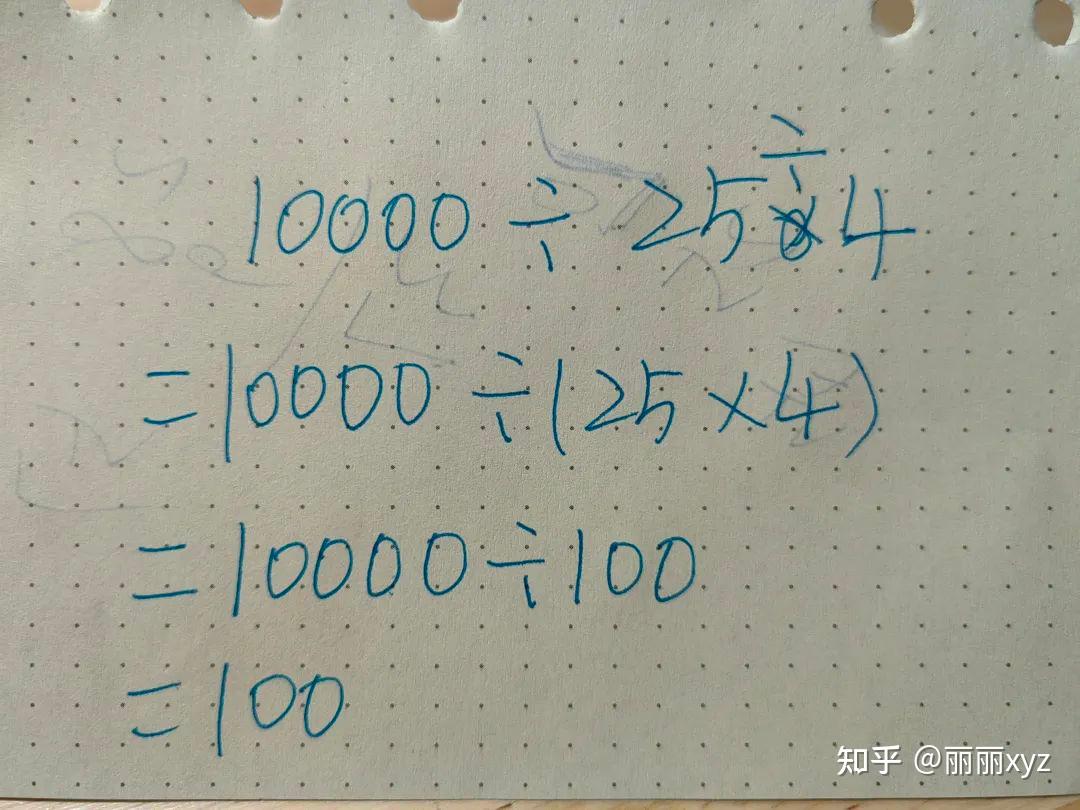 10000 ÷ 25 ÷ 4
= 10000 ÷ (25 × 4)
= 10000 ÷ 100
= 100
知乎 @丽丽xyz